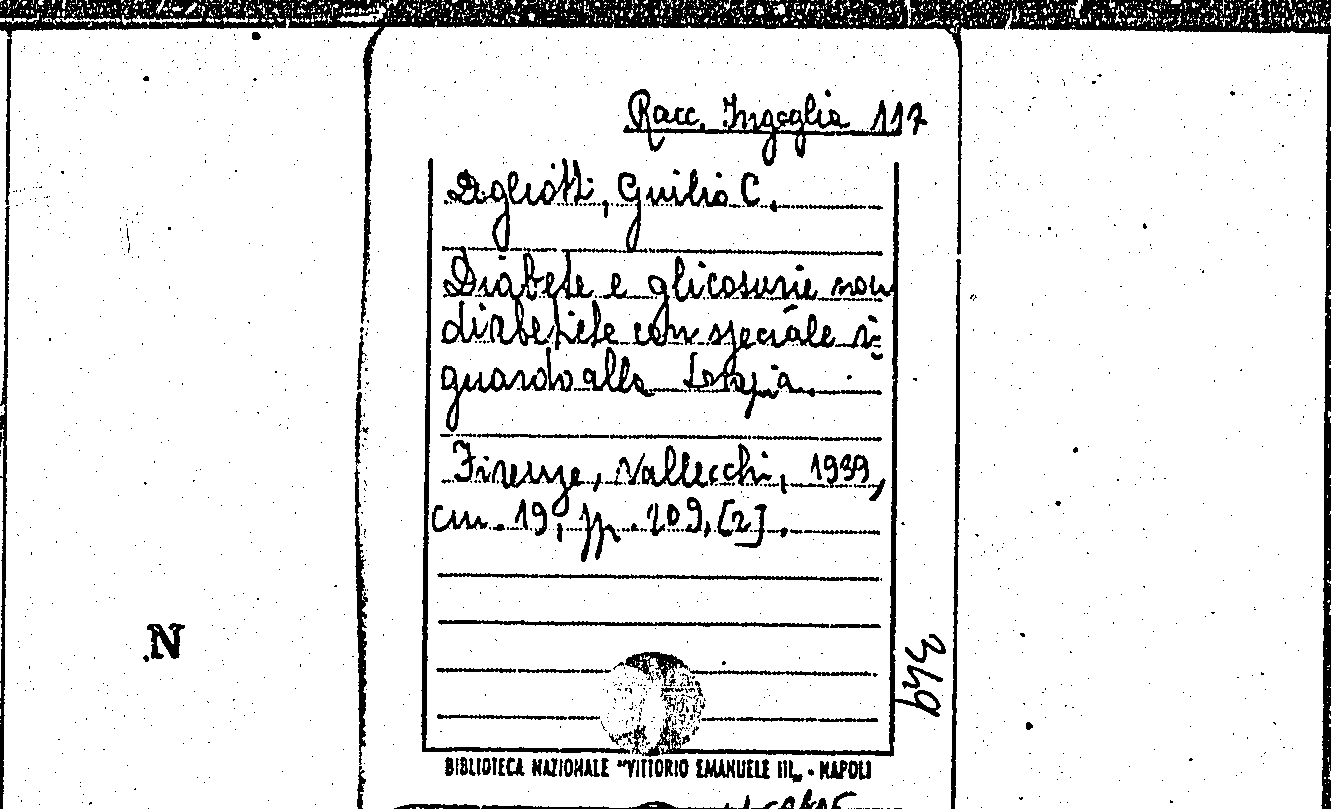 Racc. Ingeglia 117
Dogliotti, Giulio C.
Diabete e glicosurie non
diabetiche con speciale ri=
guardo alla terapia.
Firenze, Vallecchi, 1939,
cm. 19, pp. 209, [2].
N
349
BIBLIOTECA NAZIONALE "VITTORIO EMANUELE III„ - NAPOLI